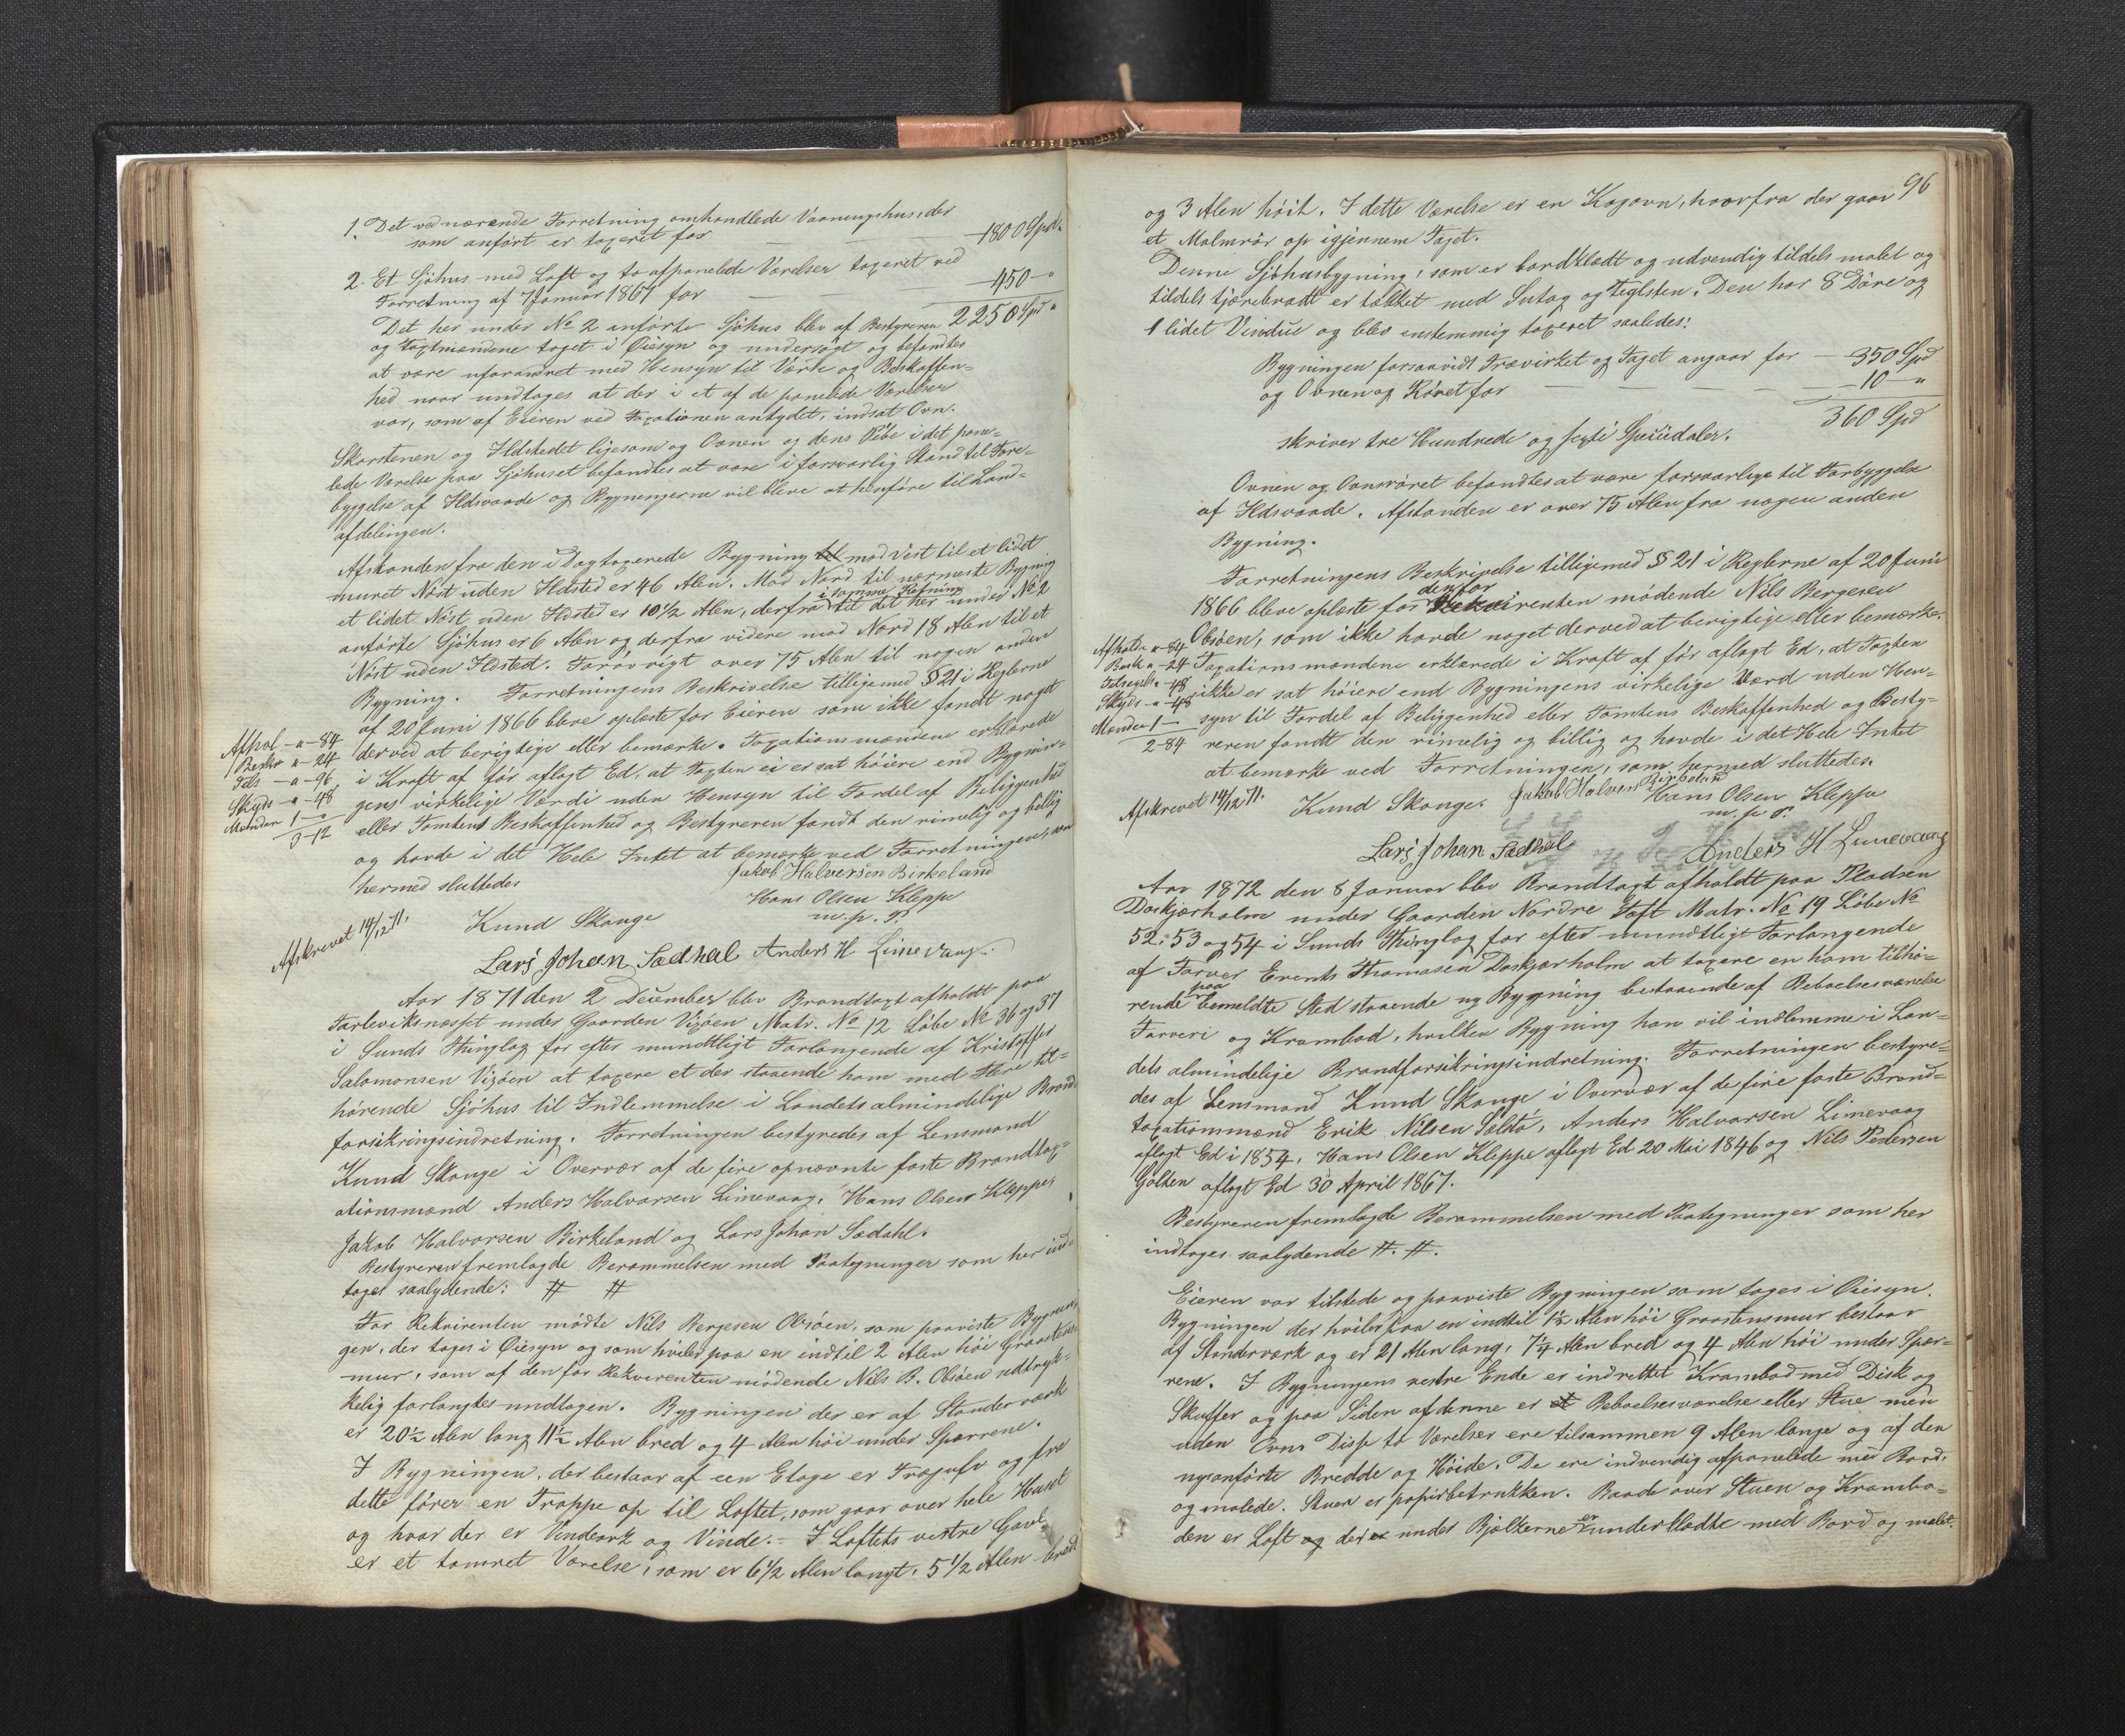 1. Det ved nærænde Forretning omhandlede Vaaningshus, der
som anført er taxeret for — — — 1800 Spd "
2. Et Sjøhus med Loft og to afpanelede Værelser taxeret ved
Forretning af 7 Januar 1867 for — — 450 — "
2250 Spd "
Det her under No 2 anførte Sjøhus blev af Bestyreren
og Taxtmændene taget i Øiesyn og undersøgt og befandtes
at være uforandret med Hensyn til Værk og Beskaffen-
hed naar undtages at der i et af de panelede Værelser
var, som af Eieren ved Taxationen antydet, indsat Ovn.
Skorstenen og Ildstedet ligesom og Ovnen og dens Pibe i det pane-
lede Værelse paa Sjøhuset befandtes at være i forsvarlig Stand til Fore-
byggelse af Ildsvaade og Bygningerne vil blive at henføre til Land-
afdelingen.
Afstanden fra den i Dag taxerede Bygning til mod Vest til et lidt
muret Nøst uden Ildsted er 46 Alen. Mod Nord til nærmeste Bygning
et lidet Nøst uden Ildsted er 10 1/2 Alen, derfra i samme Retning til det her under No 2
anførte Sjøhus er 6 Alen og derfra videre mod Nord 18 Alen til et
Nøst uden Ildsted. Forøvrigt over 75 Alen til nogen anden
Bygning. Forretningens Beskrivelse tilligemed § 21 i Reglerne
af 20 Juni 1866 bleve oplæste for Eieren som ikke fandt noget
derved at berigtige eller bemærke. Taxationsmændene erklærede
i Kraft af før aflagt Ed, at Taxten ei er sat høiere end Bygnin-
gens virkelige Værdi uden Hensyn til Fordel af Beliggenhed
eller Tomtens Beskaffenhed og Bestyreren fandt den rimelig og billig
og havde i det Hele Intet at bemærke ved Forretningen, som
hermed sluttedes
Afhol - " - 84
Beskr " - 24
Fols - " - 96
Skyds - " - 48
Mænden 1 - "
3 - 12
Jakob Halversen Birkeland
Knud Skauge
Hans Olsen Kleppe
m. p. P.
Afskrevet 14/12 71.
Lars Johan Sædhal Anders H Limevaag.
Aar 1871 den 2 December blev Brandtaxt afholdt paa
Tarleviksnæsset under Gaarden Vixøen Matr. No 12 Løbe No 36 og 37
i Sunds Thinglag for efter mundtligt Forlangende af Kristoffer
Salomonsen Vixøen at taxere et der staaende ham med flere til-
hørende Sjøhus til Indlemmelse i Landets almindelige Brand-
forsikringsindretning. Forretningen bestyredes af Lensmand
Knud Skauge i Overvær af de fire opnævnte faste Brandtax-
ationsmænd Anders Halvorsen Limevaag, Hans Olsen Kleppe,
Jakob Halvorsen Birkeland og Lars Johan Sædahl.
Bestyreren fremlagde Berammelsen med Paategninger som her ind-
tages saalydende: # #
For Rekvirenten mødte Nils Bergesen Obsøen, som paaviste Bygnin-
gen, der toges i Øiesyn og som hviler paa en indtil 2 Alen høi Graastens-
mur, som af den for Rekvirenten mødende Nils B. Obsøen udtryk-
kelig forlangtes undtagen. Bygningen der er af Standerværk
er 20 1/2 Alen lang 11 1/2 Alen bred og 4 Alen høi under Sparrene.
I Bygningen, der bestaar af een Etage er Trægulv og fra
dette fører en Trappe op til Loftet, som gaar over hele Huset
og hvor der er Vindeark og Vinde. - I Loftets vestre Gavl
er et tømret Værelse, som er 6 1/2 Alen langt, 5 1/2 Alen bredt
96
og 3 Alen høit. I dette Værelse er en Kogovn, hvorfra der gaar
et Malmrør op igjennem Taget.
Denne Sjøhusbygning, som er bordklædt og udvendig tildels malet og
tildels tjærebradt er tækket med Sutag og Teglsten. Den har 8 Døre og
1 lidet Vindue og blev enstemmig taxeret saaledes:
Bygningen forsaavidt Træverket og Taget angaar for — 350 Spd
og Ovnen og Røret for — — — 10 — "
360 Spd
skriver tre Hundrede og sexti Speciedaler.
Ovnen og Ovnsrøret befandtes at være forsvarlige til Forbyggelse
af Ildsvaade. Afstanden er over 75 Alen fra nogen anden
Bygning.
Forretningens Beskrivelse tilligemed § 21 i Reglerne af 20 Juni
1866 bleve oplæste for den for Rekvirenten mødende Nils Bergesen
Obsøen, som ikke havde noget derved at berigtige eller bemærke.
Taxationsmændene erklærede i Kraft af før aflagt Ed, at Taxten
ikke er sat høiere end Bygningens virkelige Værd uden Hen-
syn til Fordel af Beliggenhed eller Tomtens Beskaffenhed og Besty-
reren fandt den rimelig og billig og havde i det Hele Intet
at bemærke ved Forretningen, som hermed sluttedes.
Afholdn " - 84
Besk " - 24
" - 48
Skyds - " - 48
Mænden 1 -
2 - 84
Afskrevet 14/12 71.
Knud Skauge. Jakob Halversen Birkeland Hans Olsen Kleppe
m. p. P.
Lars Johan Sædhal Anders H Limevaag
Aar 1872 den 8 Januar blev Brandtaxt afholdt paa Pladsen
Daskjærholm under Gaarden Nordre Toft Matr. No 19 Løbe No
52, 53 og 54 i Sunds Thinglag for efter mundtligt Forlangende
af Farver Erents Thomasen Daskjærholm at taxere en ham tilhø-
rende paa bemeldte Sted staaende ny Bygning bestaaende af Beboelsesværelse
Farveri og Krambod, hvilken Bygning han vil indlemme i Lan-
dets almindelige Brandforsikringsindretning. Forretningen bestyre-
des af Lensmand Knud Skauge i Overvær af de fire faste Brand-
taxationsmænd Erik Nilsen Selstø, Anders Halvorsen Limevaag
aflagt Ed i 1854, Hans Olsen Kleppe aflagt Ed 20 Mai 1846 og Nils Pedersen
Gölten aflagt Ed 30 April 1867.
Bestyreren fremlagde Berammelsen med Paategninger som her
indtages saalydende #. #.
Eieren var tilstede og paaviste Bygningen som toges i Øiesyn.
Bygningen der hviler paa en indtil 1 1/2 Alen høi Graastensmur bestaar
af Standerværk og er 21 Alen lang, 7 1/4 Alen bred og 4 Alen høi under Spær-
rene. I Bygningens vestre Ende er indrettet Krambod med Disk og
Skuffer og paa Siden af denne er et Beboelsesværelse eller Stue men
uden Ovn. Disse to Værelser ere tilsammen 9 Alen lange og af den
nysanførte Bredde og Høide. De ere indvendig afpanelede med Bord,
og malede. Stuen er papirbetrukken. Baade over Stuen og Krambo-
den er Loft og der er under Bjelkerne er underklædte med Bord og malet.